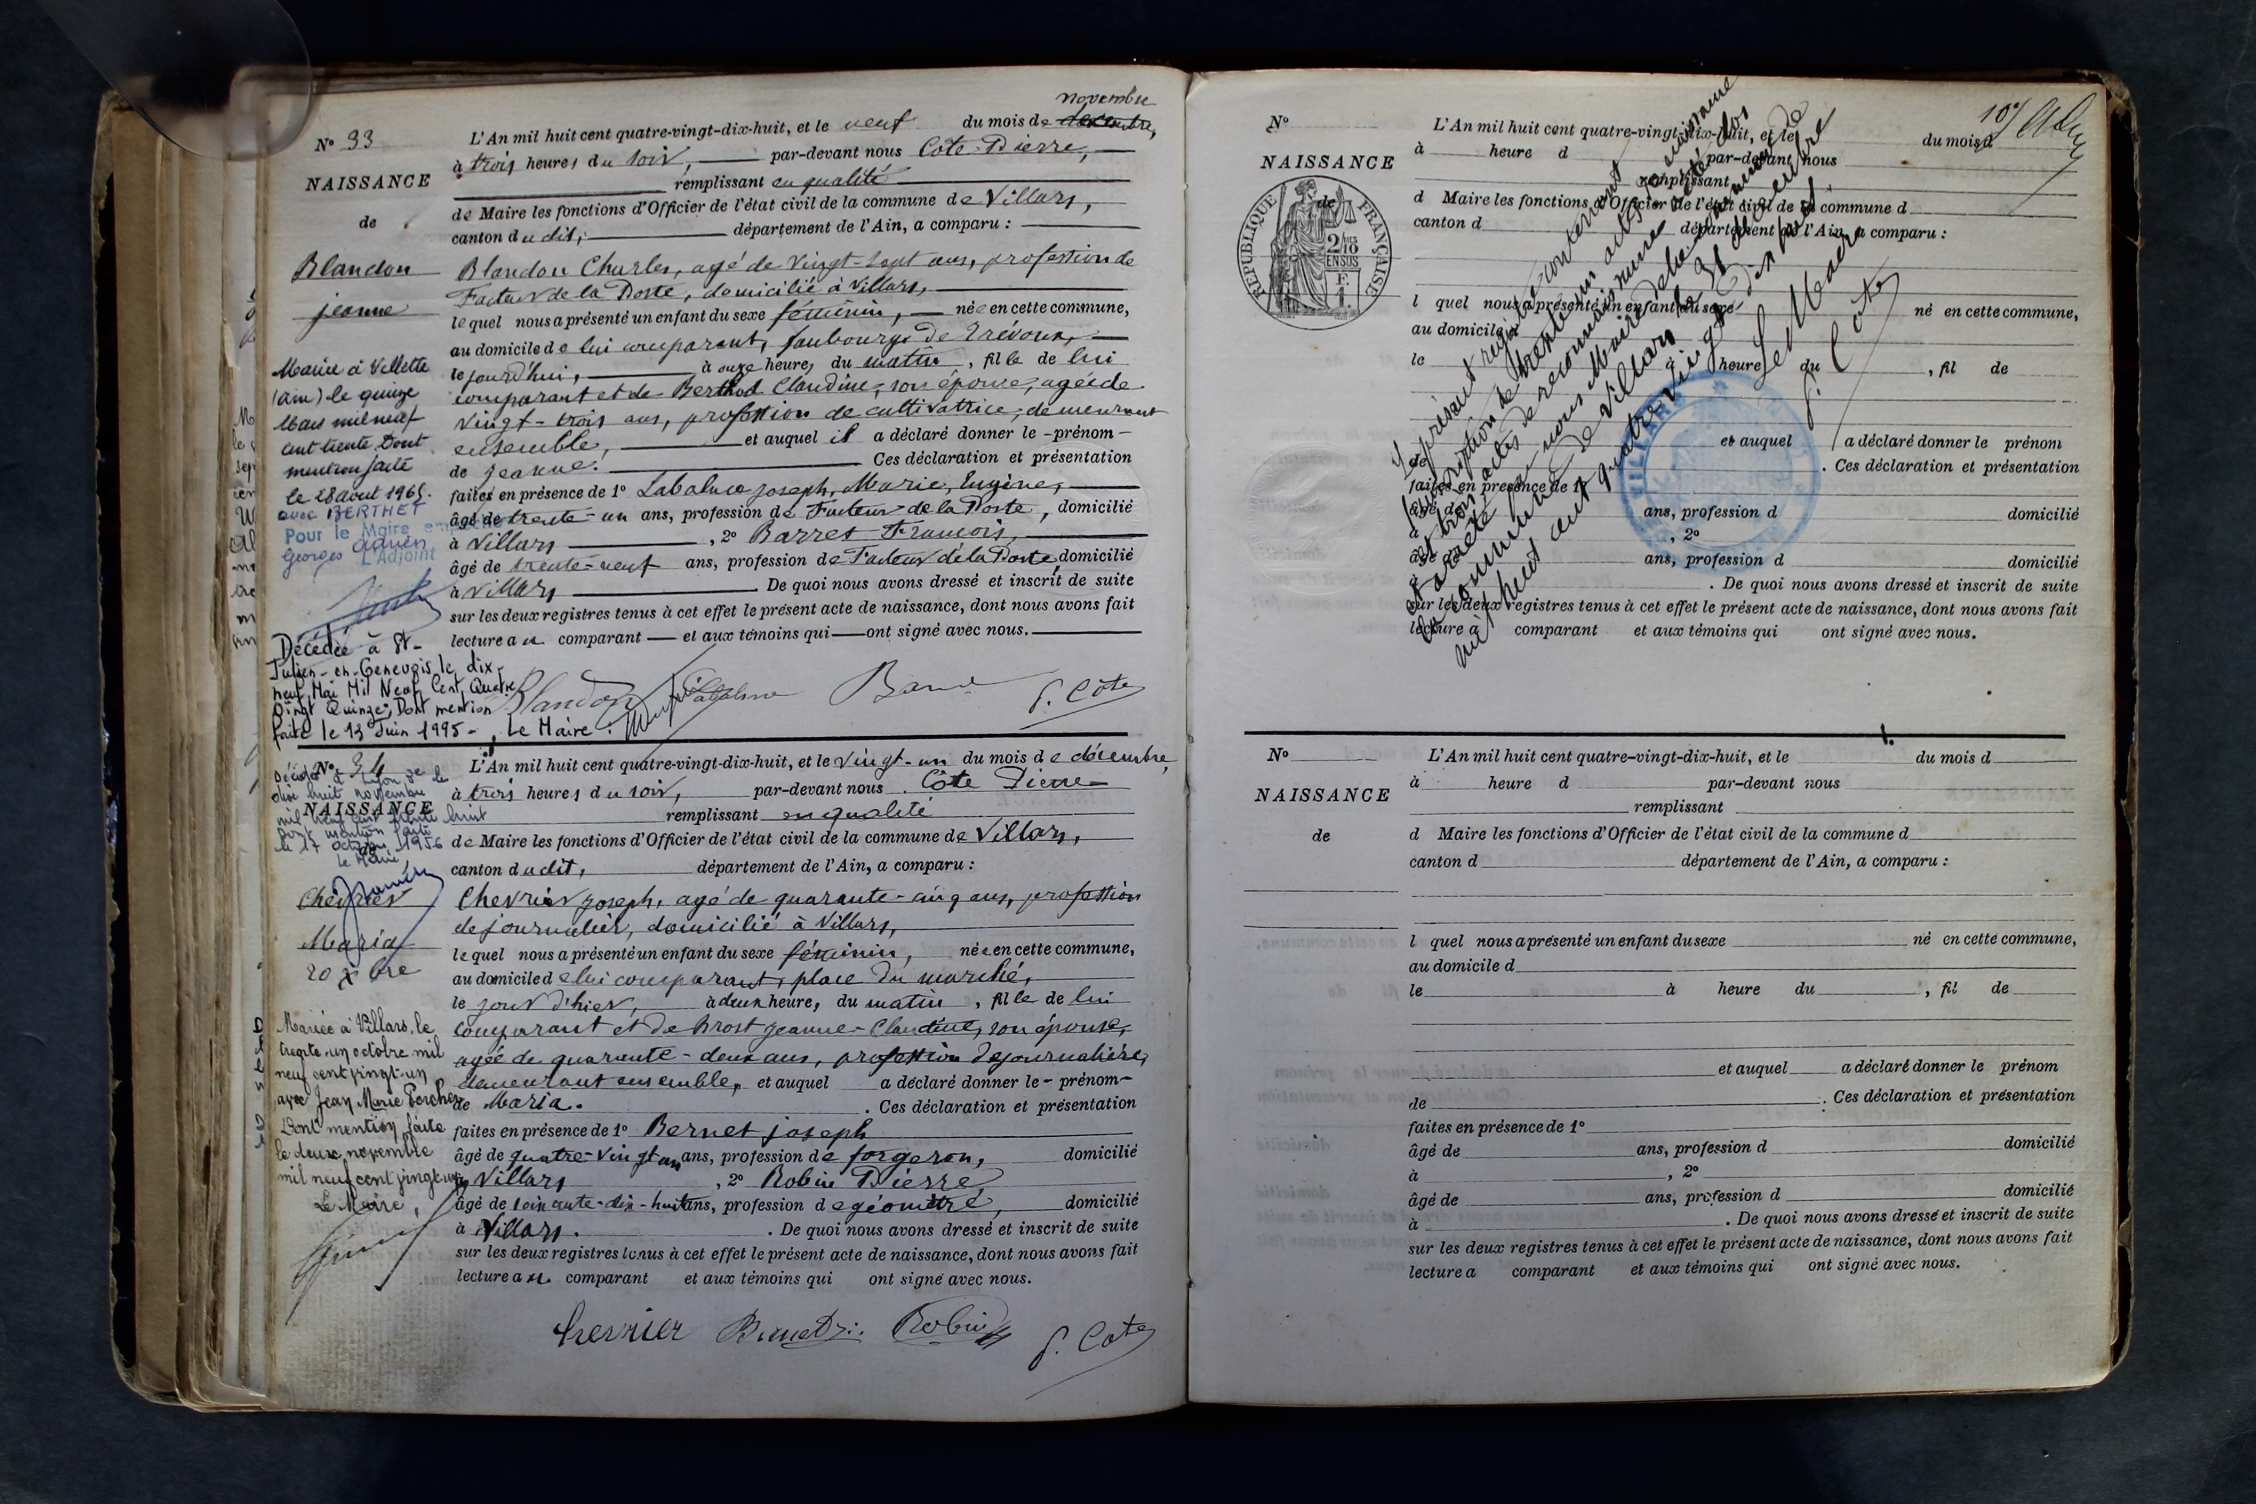 novembre
N° 33
L'An mil huit cent quatre-vingt-dix-huit, et le neuf du mois de décembre,
à trois heures du soir, par-devant nous Côte Pierre,
NAISSANCE
remplissant en qualité
de Maire les fonctions d'Officier de l'état civil de la commune de Villars,
de
canton dudit, département de l'Ain, a comparu :
Blandon
jeanne
Blandon Charles, agé de vingt-sept ans, profession de
Facteur de la Poste, domicilié à Villars,
lequel nous a présenté un enfant du sexe féminin, née en cette commune,
au domicile de lui comparant, faubourg de Trévoux,
le jourd'hui, à onze heures du matin, fille de lui
comparant et de Berthod Claudine, son épouse, agée de
vingt-trois ans, profession de cultivatrice, demeurant
ensemble, et auquel il a déclaré donner le prénom
de jeanne. Ces déclaration et présentation
faites en présence de 1° Labalme joseph, Marie, Eugène,
âgé de trente-un ans, profession de Facteur de la Poste, domicilié
à Villars, 2° Barret François,
âgé de trente-neuf ans, profession de Facteur de la Poste, domicilié
à Villars. De quoi nous avons dressé et inscrit de suite
sur les deux registres tenus à cet effet le présent acte de naissance, dont nous avons fait
lecture au comparant et aux témoins qui ont signé avec nous.
Mariée à Villette
(ain) le quinze
Mars mil neuf
cent trente Dont
mention faite
le 28 aout 1965.
avec BERTHET
Georges Adrien
Pour le Maire
L'Adjoint
Décédée à St-
Julien-en-Genevois le dix-
neuf Mai Mil Neuf Cent Quatre
Vingt Quinze, Dont mention
faite le 13 Juin 1995 -, Le Maire :
Blandon Labalme Barret P. Côte
N° 34
L'An mil huit cent quatre-vingt-dix-huit, et le vingt-un du mois de décembre,
à trois heures du soir, par-devant nous Côte Pierre
NAISSANCE
remplissant en qualité
de Maire les fonctions d'Officier de l'état civil de la commune de Villars,
de
canton dudit, département de l'Ain, a comparu :
Décédée à Lyon le
dix huit novembre
mil neuf cent trente huit
Dont mention faite
le 17 octobre 1956
le Maire
Chevrier
Maria
20 Xbre
Chevrier joseph, agé de quarante-cinq ans, profession
de journalier, domicilié à Villars,
lequel nous a présenté un enfant du sexe féminin, née en cette commune,
au domicile de lui comparant, place du marché,
le jour d'hier, à deux heures du matin, fille de lui
comparant et de Brost jeanne-Claudine, son épouse,
agée de quarante-deux ans, profession de journalière,
demeurant ensemble, et auquel a déclaré donner le prénom
de Maria. Ces déclaration et présentation
faites en présence de 1° Bernet joseph
âgé de quatre-vingt un ans, profession de forgeron, domicilié
à Villars, 2° Robin Pierre,
âgé de soixante-dix-huit ans, profession de géomètre, domicilié
à Villars. De quoi nous avons dressé et inscrit de suite
sur les deux registres tenus à cet effet le présent acte de naissance, dont nous avons fait
lecture au comparant et aux témoins qui ont signé avec nous.
Mariée à Villars, le
trente-un octobre mil
neuf cent vingt-un
avec Jean Marie Percher
Dont mention faite
le deux novembre
mil neuf cent vingt-un
Le Maire,
Chevrier Bernet Robin P. Cote
10
N°
L'An mil huit cent quatre-vingt-dix-huit, et le du mois d
à heure d par-devant nous
NAISSANCE
remplissant
de
d Maire les fonctions d'Officier de l'état civil de la commune d
canton d département de l'Ain, a comparu :
RÉPUBLIQUE FRANÇAISE
l quel nous a présenté un enfant du sexe né en cette commune,
au domicile d
le à heure du , fil de
et auquel a déclaré donner le prénom
de . Ces déclaration et présentation
faites en présence de 1°
âgé de ans, profession d domicilié
à , 2°
âgé de ans, profession d domicilié
à . De quoi nous avons dressé et inscrit de suite
sur les deux registres tenus à cet effet le présent acte de naissance, dont nous avons fait
lecture a comparant et aux témoins qui ont signé avec nous.
Le présent registre contenant
l'inscription de trente un actes de naissance
et trois actes de reconnaissance a été clos
et arrêté par nous Maire de la commune de
la commune de Villars le 31 décembre
mil huit cent quatre vingt dix huit.
Le Maire
P. Cote
N°
L'An mil huit cent quatre-vingt-dix-huit, et le du mois d
à heure d par-devant nous
NAISSANCE
remplissant
de
d Maire les fonctions d'Officier de l'état civil de la commune d
canton d département de l'Ain, a comparu :
l quel nous a présenté un enfant du sexe né en cette commune,
au domicile d
le à heure du , fil de
et auquel a déclaré donner le prénom
de . Ces déclaration et présentation
faites en présence de 1°
âgé de ans, profession d domicilié
à , 2°
âgé de ans, profession d domicilié
à . De quoi nous avons dressé et inscrit de suite
sur les deux registres tenus à cet effet le présent acte de naissance, dont nous avons fait
lecture a comparant et aux témoins qui ont signé avec nous.